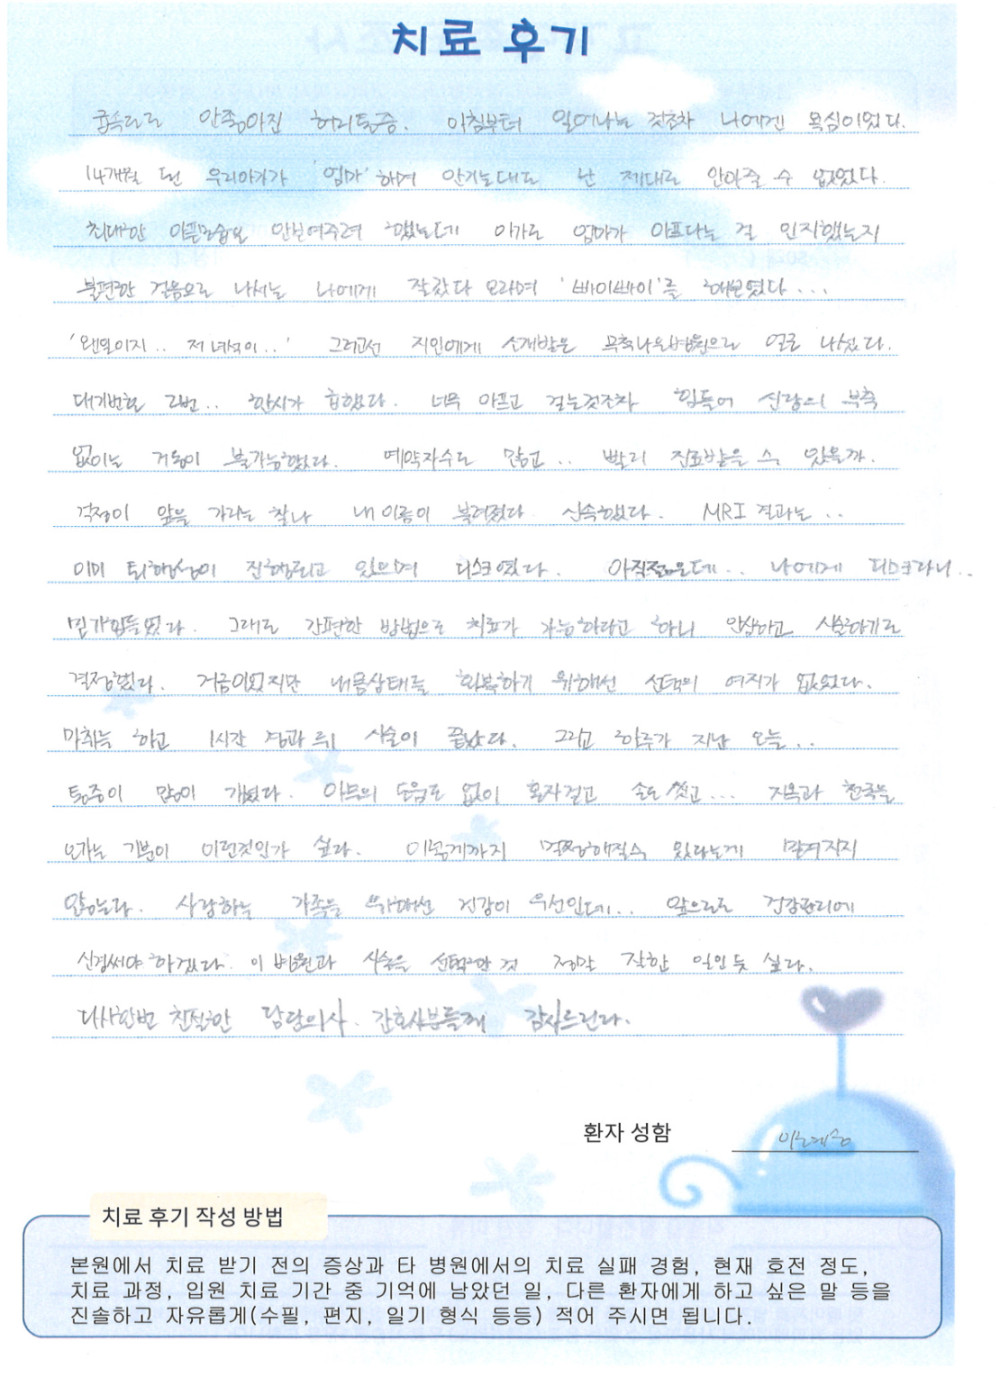 치료 후기
급속도로 안좋아진 허리통증. 아침부터 일어나는 것조차 나에겐 욕심이었다.
14개월 된 우리아가가 '엄마' 하며 안기는대도 난 제대로 안아줄 수 없었다.
최대한 아픈모습을 안보여주려 했는데 아가도 엄마가 아프다는 걸 인지했는지
불편한 걸음으로 나서는 나에게 잘갔다 오라며 '빠이빠이'를 해보였다...
'왠일이지.. 저 녀석이..' 그러고선 지인에게 소개받은 척나은병원으로 얼른 나섰다.
대기번호 2번.. 한시가 급했다. 너무 아프고 걷는것조차 힘들어 신랑의 부축
없이는 거동이 불가능했다. 예약자수도 많고.. 빨리 진료받을 수 있을까.
걱정이 앞을 가리는 찰나 내 이름이 불려졌다. 신속했다. MRI 결과는..
이미 퇴행성이 진행되고 있으며 디스크였다. 아직젊은데.. 나에게 디스크라니..
믿기힘들었다. 그래도 간편한 방법으로 치료가 가능하다고 하니 안심하고 시술하기로
결정했다. 거금이었지만 내몸상태를 회복하기 위해선 선택의 여지가 없었다.
마취를 하고 1시간 경과 후 시술이 끝났다. 그리고 하루가 지난 오늘..
통증이 많이 개선됐다. 도움도 없이 혼자걷고 손도 씻고... 지옥과 천국을
오가는 기분이 이런것인가 싶다. 이렇게까지 멀쩡해질수 있다는게 믿겨지지
않는다. 사랑하는 가족을 위해선 건강이 우선인데.. 앞으로도 건강관리에
신경써야 하겠다. 이 병원과 시술을 선택한 것 정말 잘한 일인 듯 싶다.
다시한번 친절한 담당의사. 간호사분들께 감사드린다.
환자 성함
치료 후기 작성 방법
본원에서 치료 받기 전의 증상과 타 병원에서의 치료 실패 경험, 현재 호전 정도,
치료 과정, 입원 치료 기간 중 기억에 남았던 일, 다른 환자에게 하고 싶은 말 등을
진솔하고 자유롭게(수필, 편지, 일기 형식 등등) 적어 주시면 됩니다.